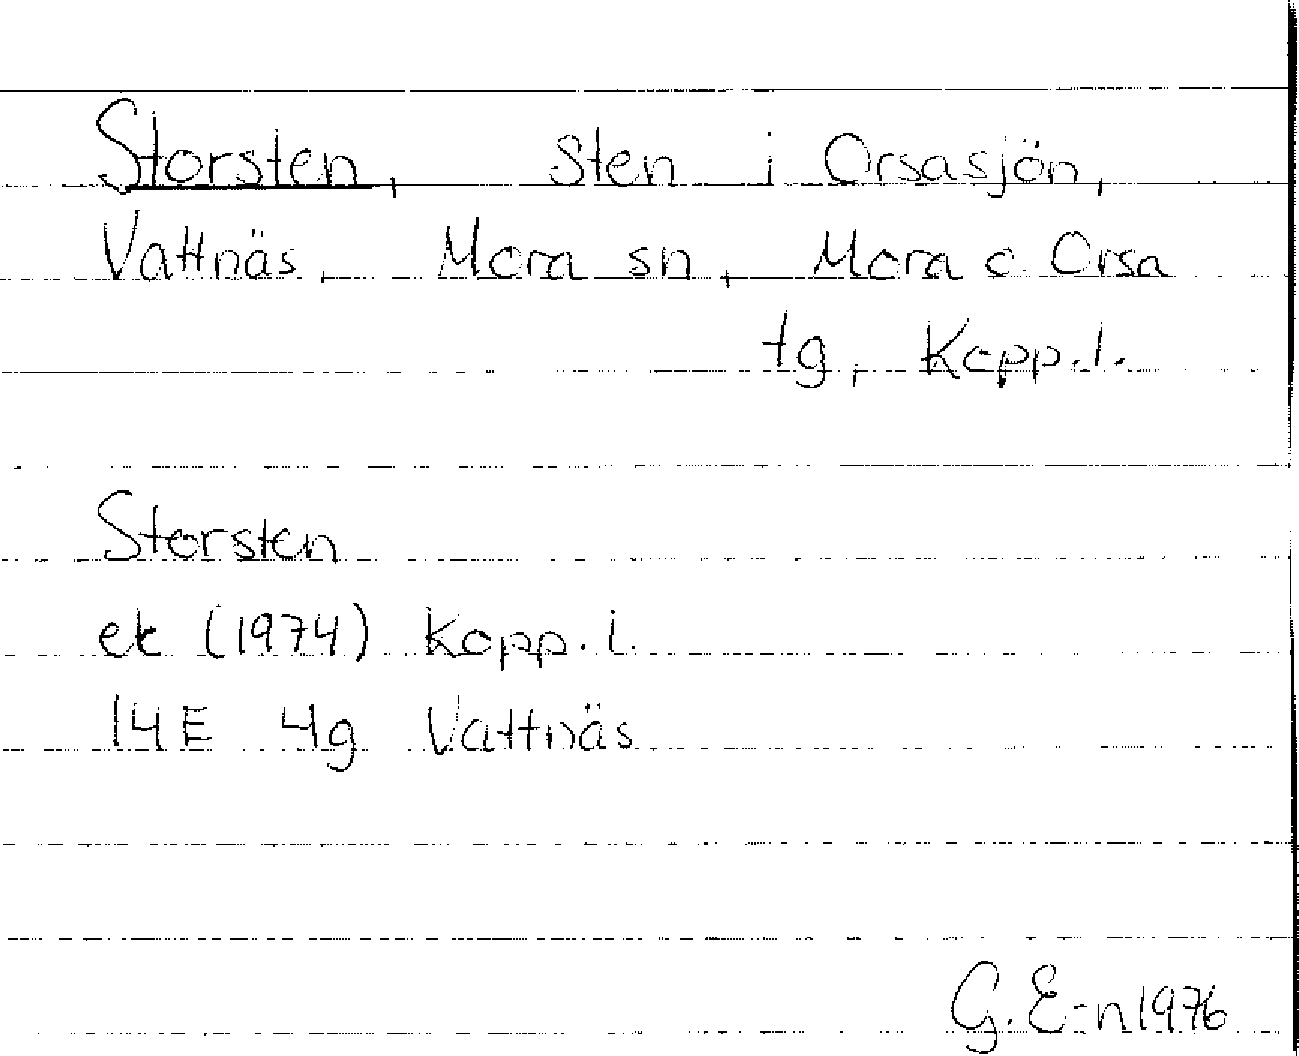 Storsten, Sten i Orsasjön,
Vattnäs, Mora sn, Mora o Orsa
tg, Kopp. l.
Storsten
ek (1974) Kopp. l.
14E 4g Vattnäs
G. E-n 1976